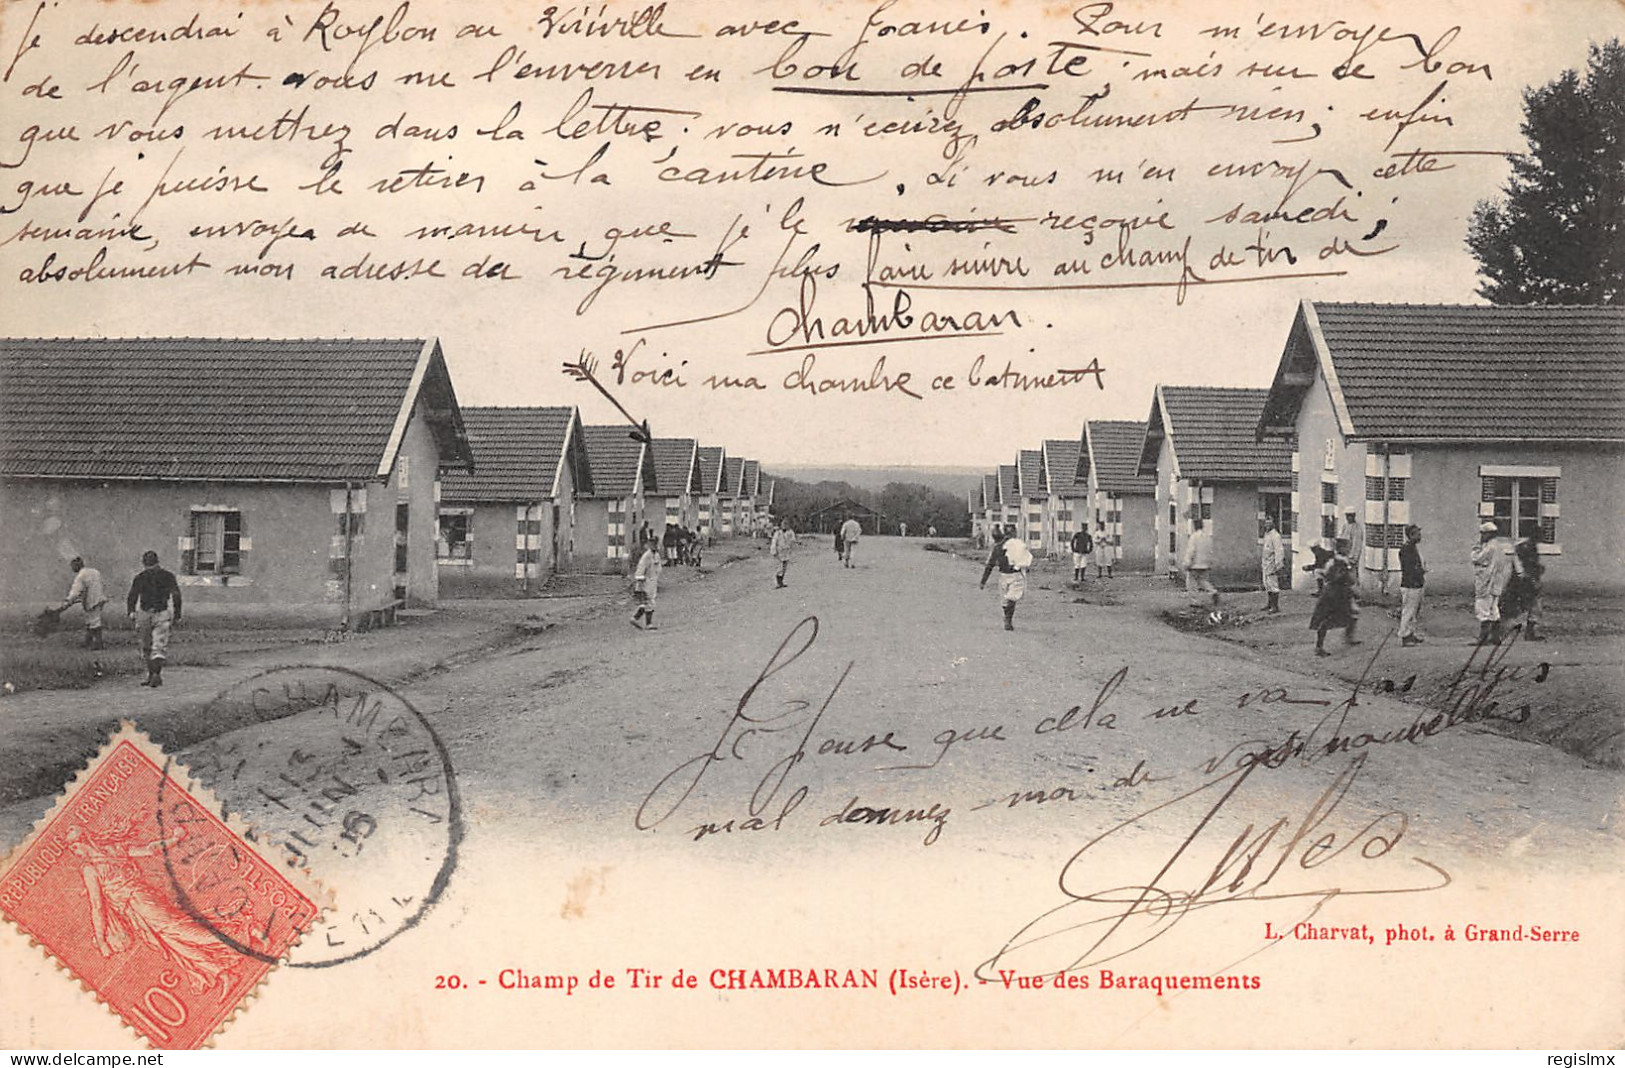 je descendrai à Roybon ou Viriville avec Joanis. Pour m'envoyer
de l'argent. vous me l'enverrer en bon de poste; mais sur ce bon
que vous mettrez dans la lettre; vous n'écrirez absolument rien; enfin
que je puisse le retirer à la cantine. Si vous m'en envoyer cette
semaine, envoyer de manière que je le reçoive samedi;
absolument mon adresse du régiment plus faire suivre au champ de tir de
Chambaran.
Voici ma chambre ce batiment
Je pense que cela ne va pas plus
mal donnez-moi de vos nouvelles
Jules
CAMP CHAMBARAN
JUIN
REPUBLIQUE FRANÇAISE
POSTES
10c
L. Charvat, phot. à Grand-Serre
20. - Champ de Tir de CHAMBARAN (Isère). - Vue des Baraquements
regislmx